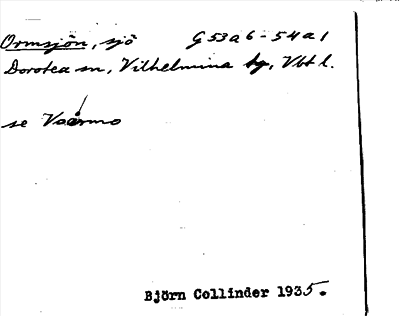 Ormsjön, sjö G 53 a 6 - 54 a 1
Dorotea sn, Vilhelmina tg, Vbtl.
se Vaərmo
Björn Collinder 1935.